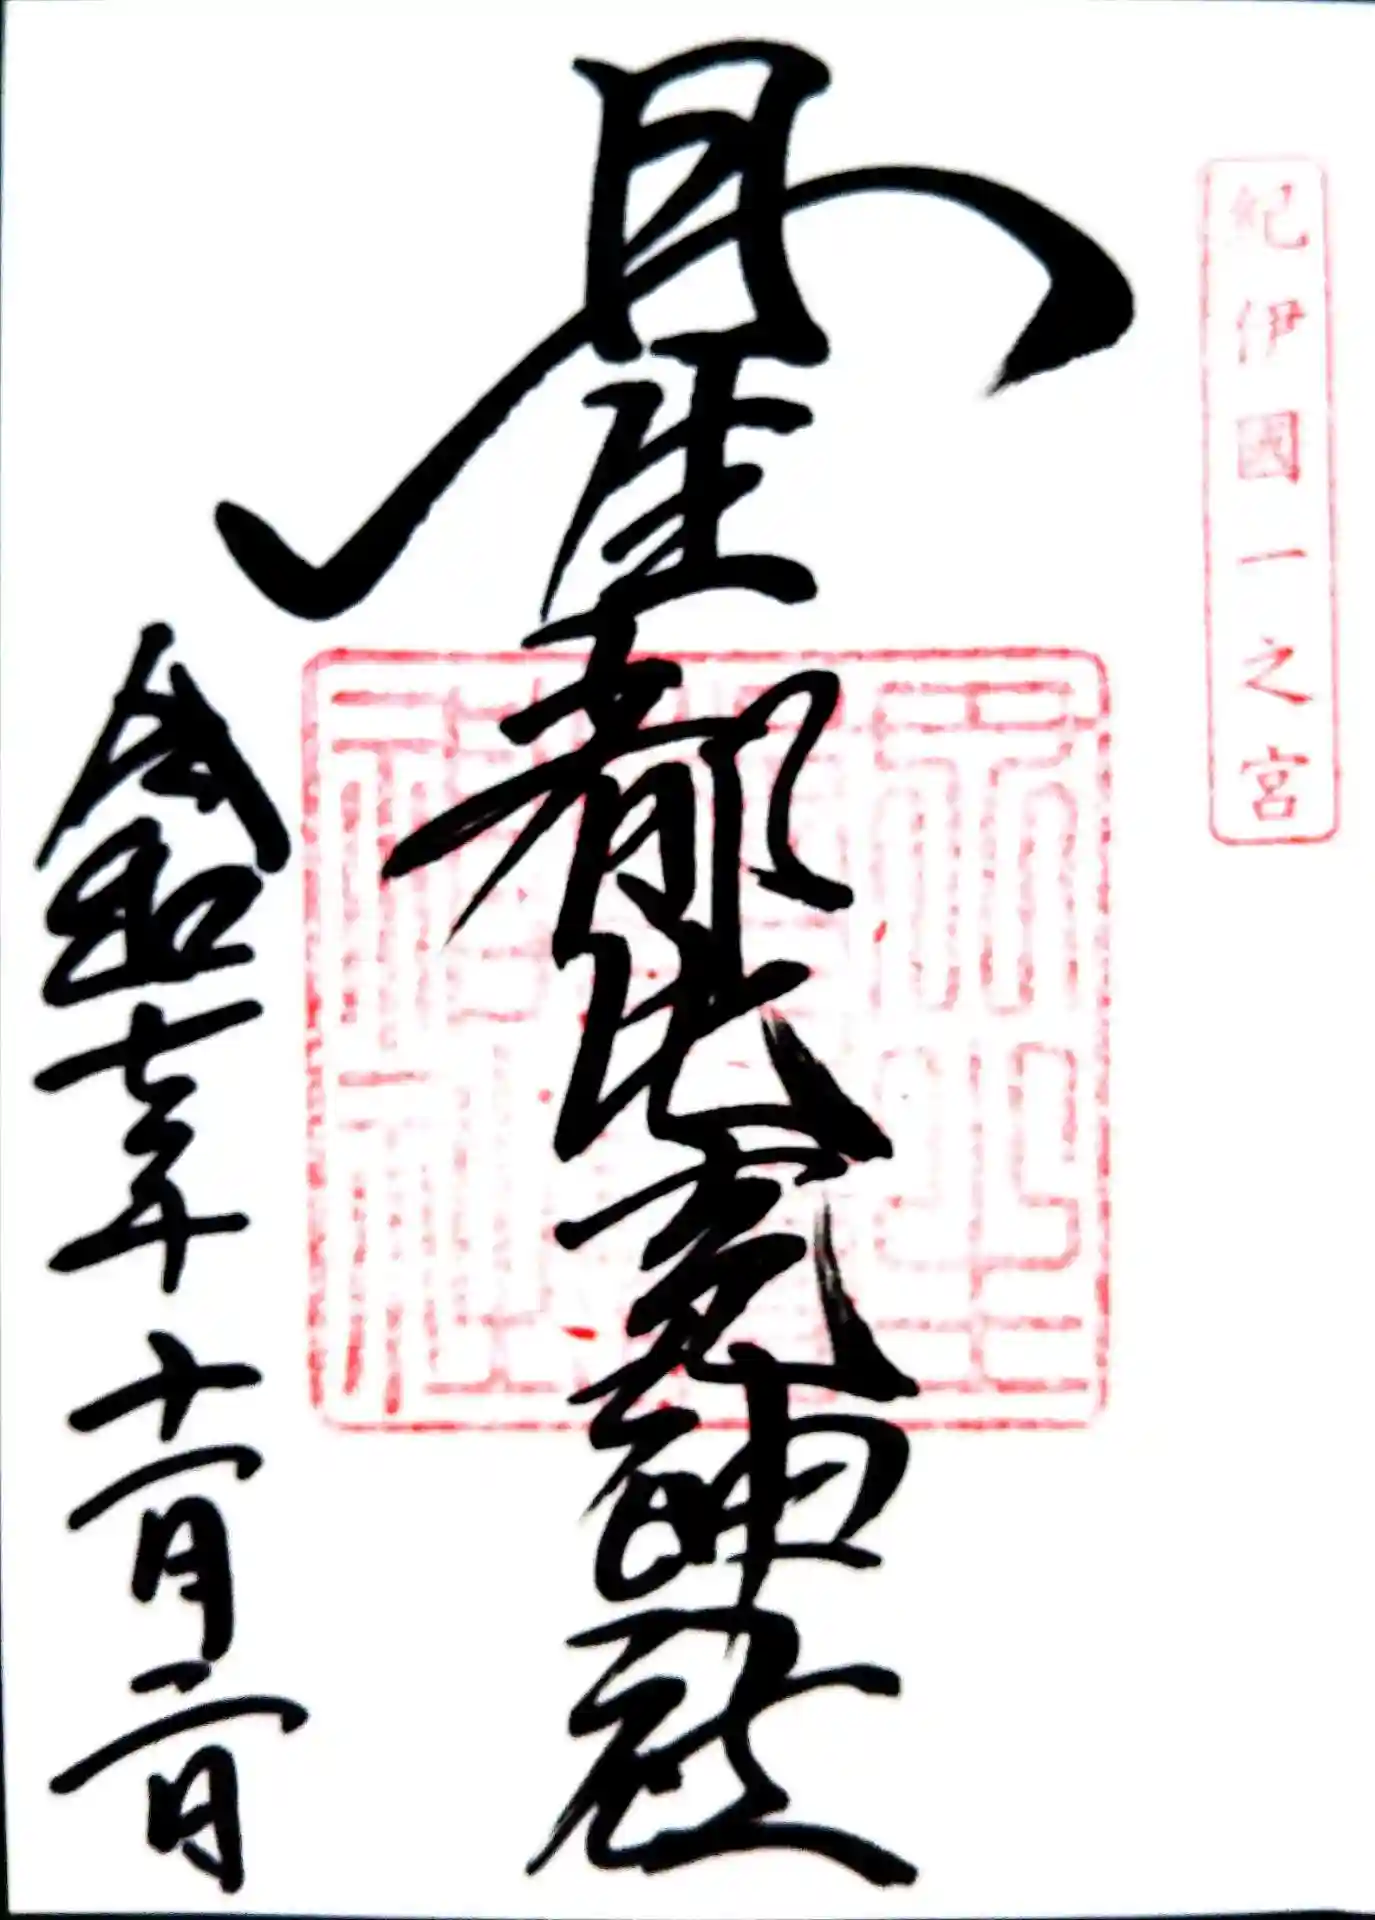 紀伊國一之宮
丹生都比売神社
令和七年十一月二日